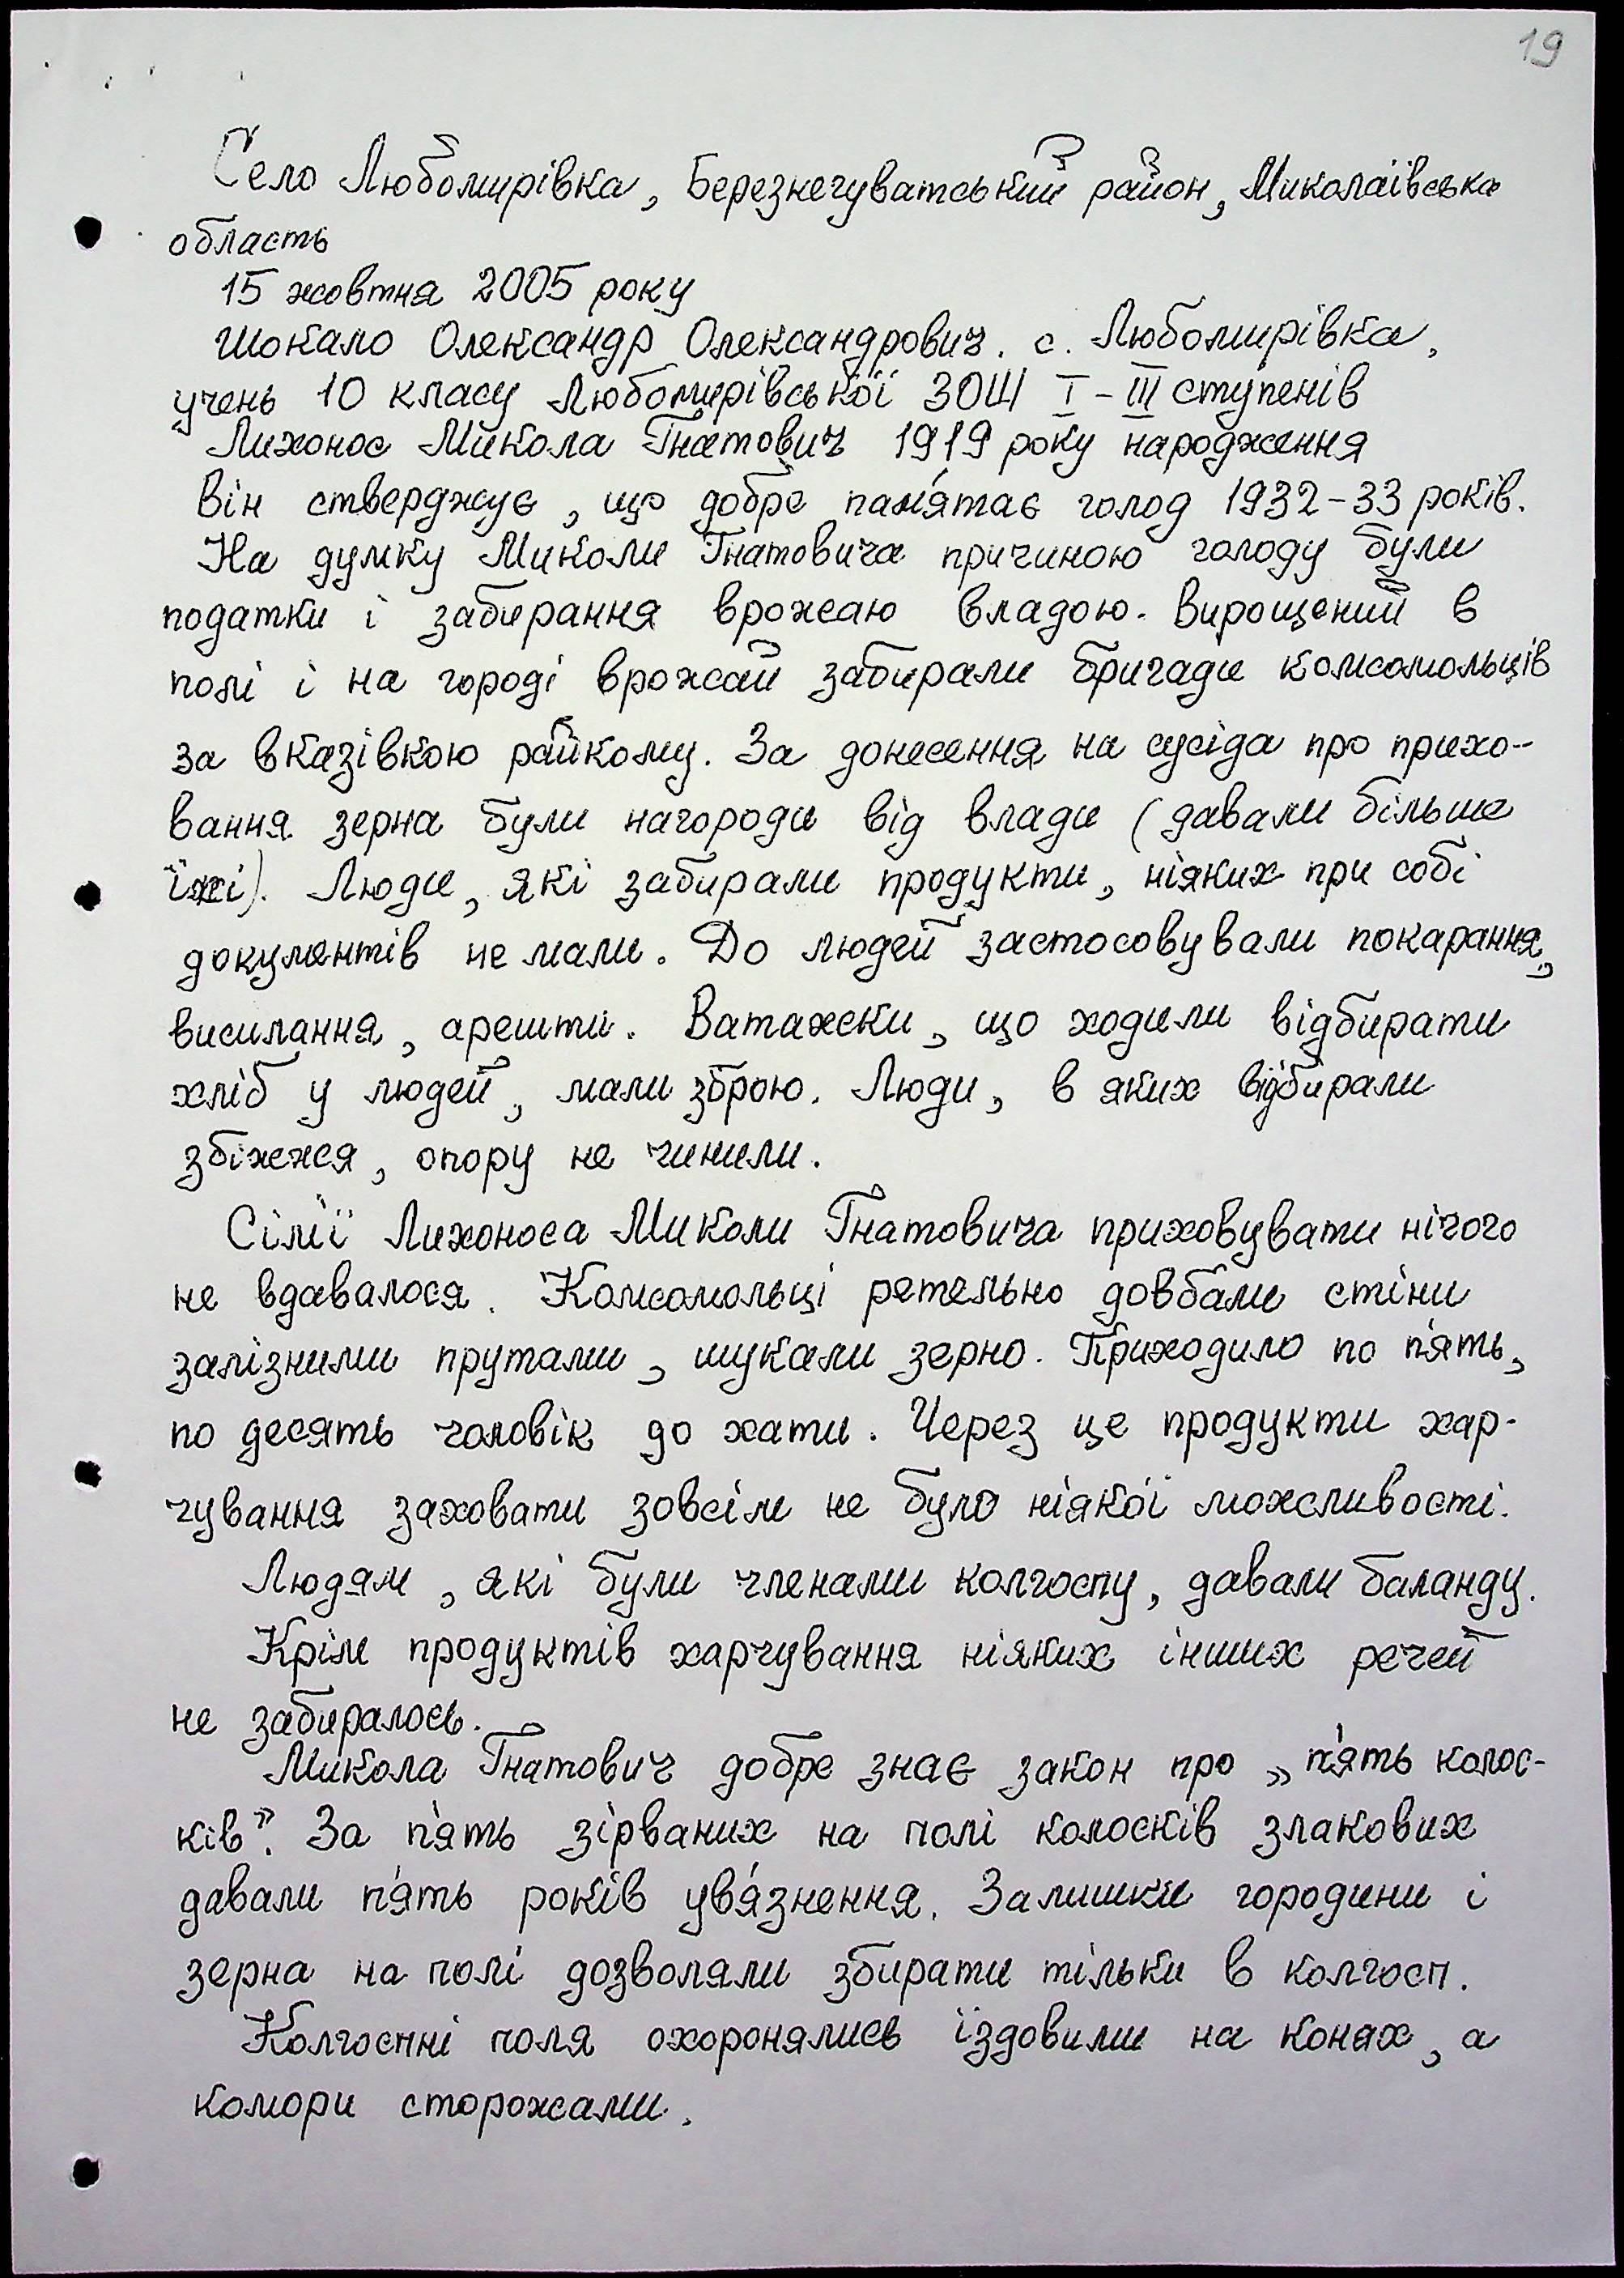 19
Село Любомирівка, Березнегуватський район, Миколаївська
область
15 жовтня 2005 року
Шокало Олександр Олександрович. с. Любомирівка,
учень 10 класу Любомирівської ЗОШ I - III ступенів
Лихонос Микола Гнатович 1919 року народження
Він стверджує, що добре пам'ятає голод 1932-33 років.
На думку Миколи Гнатовича причиною голоду були
податки і забирання врожаю владою. Вирощений в
полі і на городі врожай забирали бригади комсомольців
за вказівкою райкому. За донесення на сусіда про прихо-
вання зерна були нагороди від влади (давали більше
їжі). Люди, які забирали продукти, ніяких при собі
документів не мали. До людей застосовували покарання,
висилання, арешти. Ватажки, що ходили відбирати
хліб у людей, мали зброю. Люди, в яких відбирали
збіжжя, опору не чинили.
Сім'ї Лихоноса Миколи Гнатовича приховувати нічого
не вдавалося. Комсомольці ретельно довбали стіни
залізними прутами, шукали зерно. Приходило по п'ять,
по десять чоловік до хати. Через це продукти хар-
чування заховати зовсім не було ніякої можливості.
Людям, які були членами колгоспу, давали баланду.
Крім продуктів харчування ніяких інших речей
не забиралось.
Микола Гнатович добре знає закон про „п'ять колос-
ків". За п'ять зірваних на полі колосків злакових
давали п'ять років ув'язнення. Залишки городини і
зерна на полі дозволяли збирати тільки в колгосп.
Колгоспні поля охоронялись їздовими на конях, а
комори сторожами.